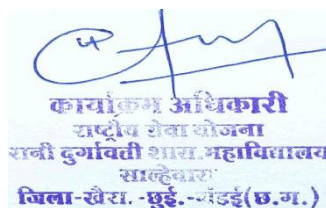 कार्यक्रम अधिकारी
राष्ट्रीय सेवा योजना
रानी दुर्गावती शास. महाविद्यालय
साल्हेवारा
जिला-खैरा. -छुई. -गंडई(छ.ग.)